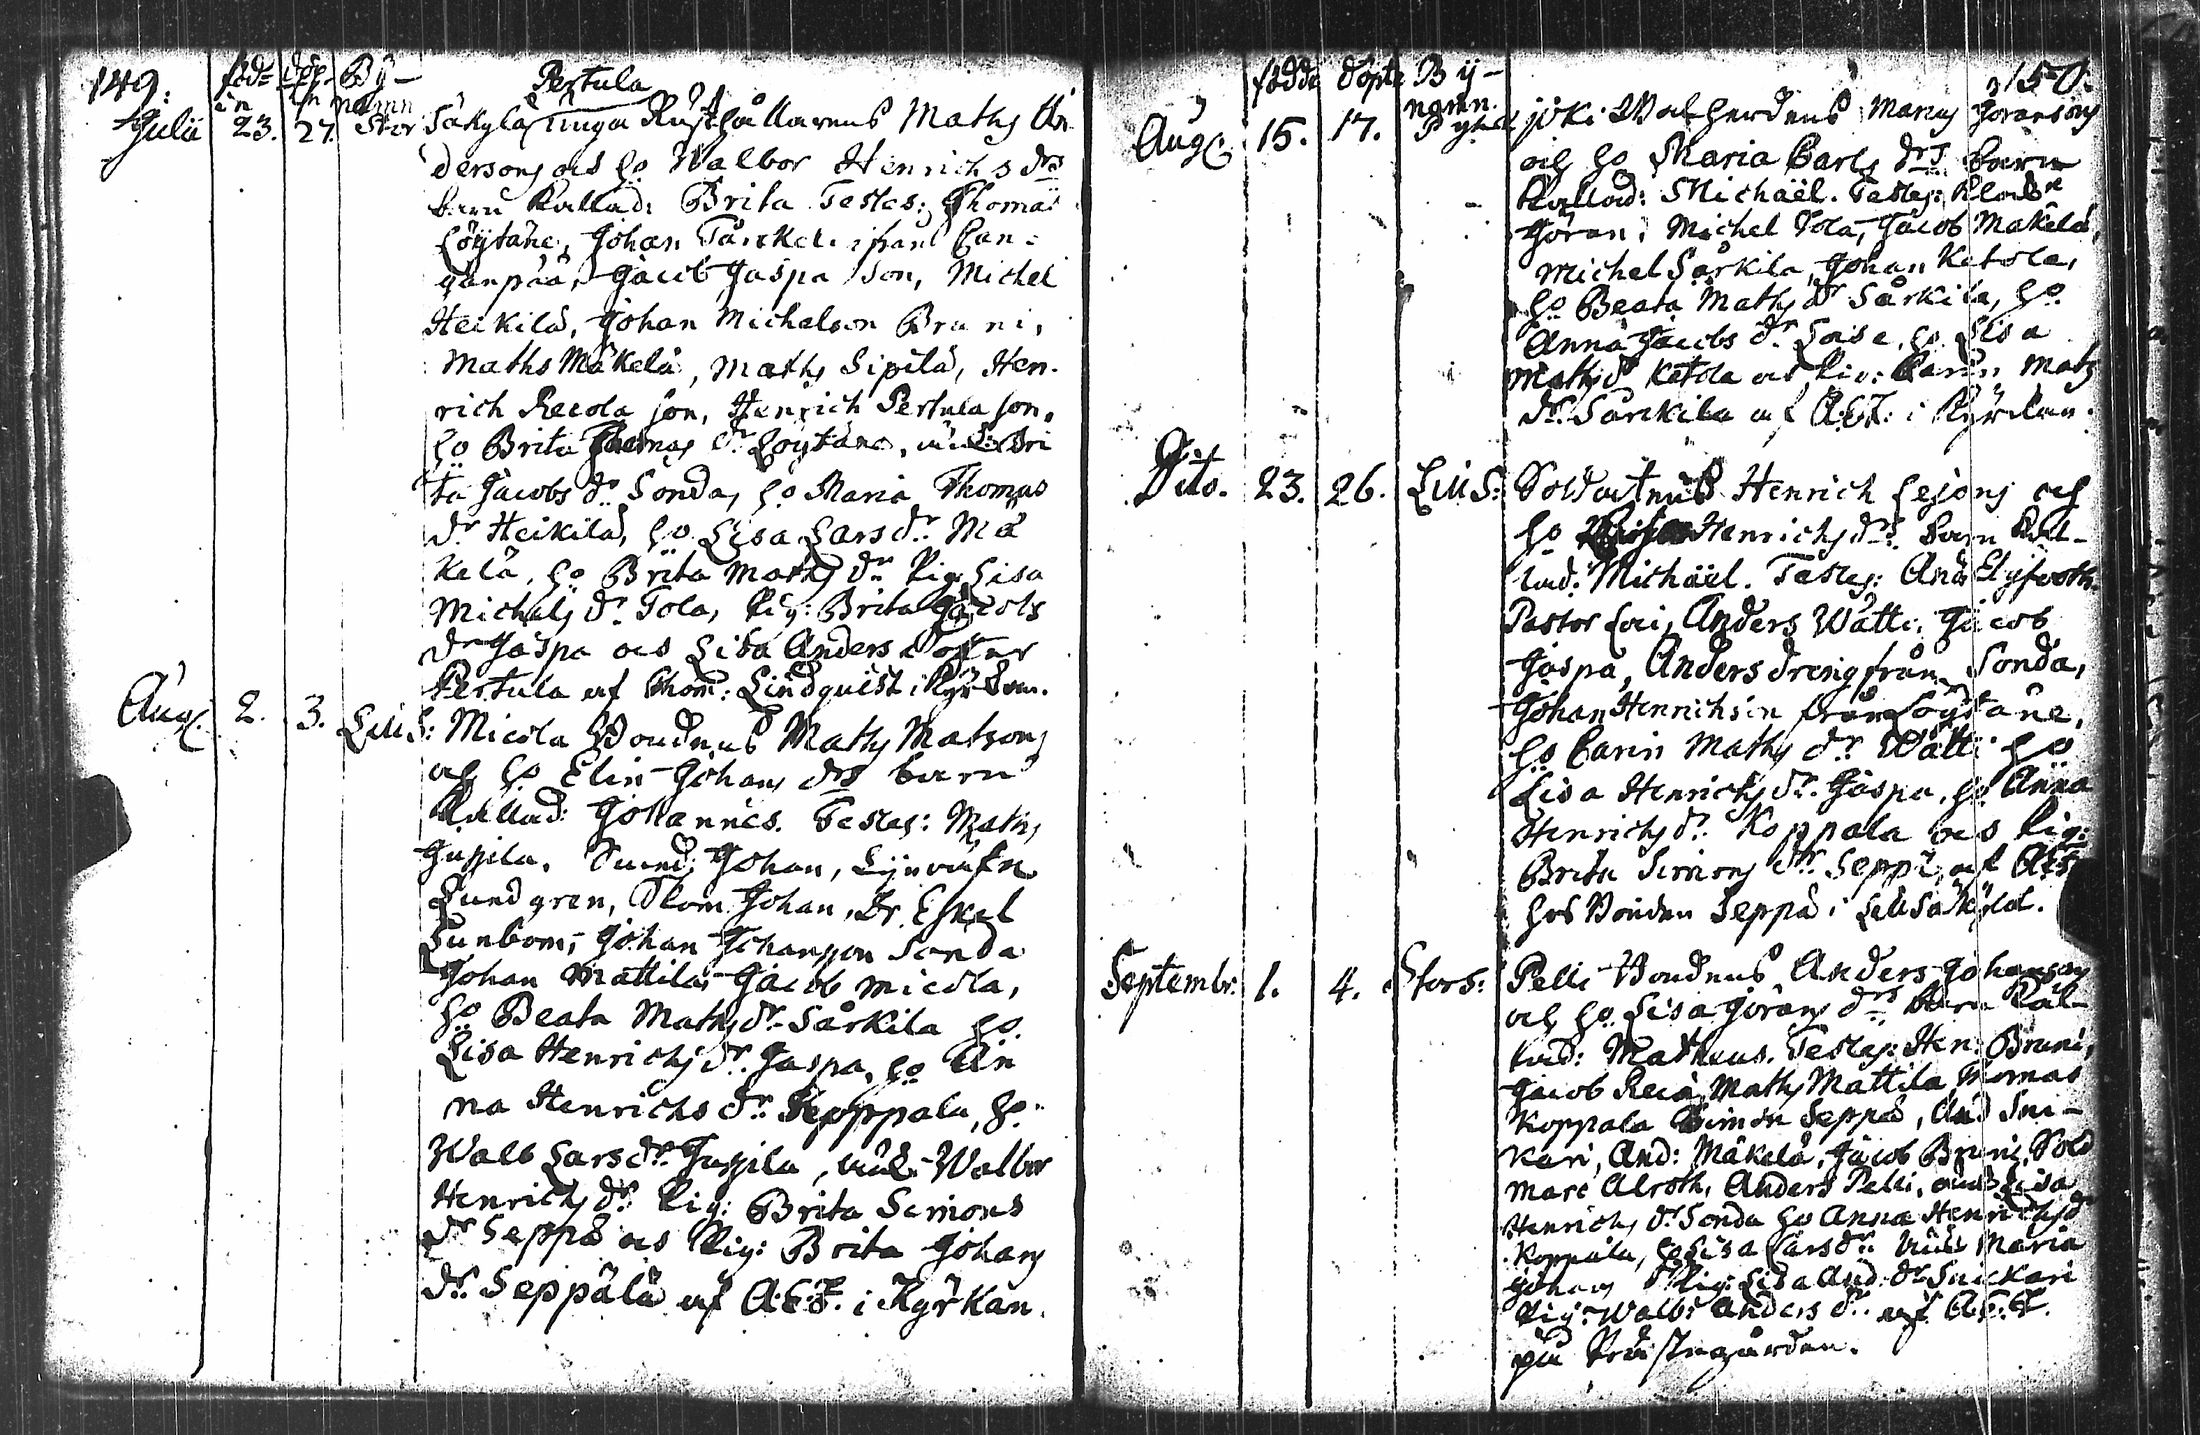 149.
föd= döp= By=
in in namn
Pertula
Julii 23. 27. Stor Säkylä unga Rusthållarens Mathz An
dersons och ho Walbor Henrichs drs
barn Kallad: Brita Testes: Thomas
Löytäne, Johan Tårckel ifrån Can=
ganpää, Jacob Jaspa son, Michel
Heikilä, Johan Michelson Bruni,
Maths Mäkelä, Maths Sipilä, Hen-
rich Recola son, Henrich Pertula son,
ho Brita Thomas dr Löytäne, Bri
ta Jacobs dr Sonda, ho Maria Thomas
dr Heikilä, ho Lisa Lars dr Mä
kelä, ho Brita Mathz dr Pig: Lisa
Michels dr Tola, Pig: Brita Jacobs
dr Jaspa och Lisa Anders Doter
Pertula af Thom: Lindquist i Kyrkan.
Aug. 2. 3. LillS: Micola Bondens Maths Matsons
och ho Elin Johans drs barn
Kallad: Johannes. Testes: Maths
Jupila, Johan,
Lundgren, Johan, Dr Eskel
Sunbom, Johan Johansson Sonda
Johan Mattila, Jacob Micola,
ho Beata Maths dr Särkilä ho
Lisa Henrichs dr Jaspa, ho An
na Henrichs dr Kopppala, ho
Walb Lars dr Jupila, Walbor
Henrichs dr Pig: Brita Simons
dr Seppä och Pig: Brita Johans
dr Seppälä af A.E.T. i Kyrkan.
150.
födde döpte By=
namn.
Aug. 15. 17. joki Walherdens Goransons
och ho Maria Carls drs barn
Kallad: Michaël. Testes:
Göran, Michel Tola, Jacob Mäkelä,
Michel Särkilä, Johan Ketola,
ho Beata Maths dr Särkilä, ho
Anna Jacobs dr ho Lisa
Maths dr Ketola och Pig: Carin Mats
dr Särckilä af A.E.T. i Kyrckan.
Dito. 23. 26. LillS: Soldatens Henrich Lejons och
ho Henrichs drs barn Kal-
lad: Michäel. Testes: And: Elgforth.
Pastor Loci, Anders Wätti, Jacob
Jaspa, Anders dreng från Sonda,
Johan Henrichson från Löytäne,
ho Carin Maths dr Wätti ho
Lisa Henrichs dr Jaspa, ho Anna
Henrichs dr Koppala och Pig:
Brita Simons dr Seppä, af
hos Bonden Seppä i LillSäkylä.
Septembr: 1. 4. StorS: Pelli Bondens Anders Johansons
och ho Lisa Görans drs barn Kal-
lad: Matheus. Testes: Hen: Bruni,
Jacob Maths Mattila, Thomas
Koppala Simon Seppä, And
kari, And: Mäkelä, Jacob Bruni, Sold
Marc Alroth, Anders Pelli, Lisa
Henrichs dr Sonda ho Anna Henrichs dr
Koppala, ho Lisa Lars dr Maria
Johans dr Pig: Lisa And: dr
Pig: Walbr Anders dr af A.E.T.
på Prästegården.